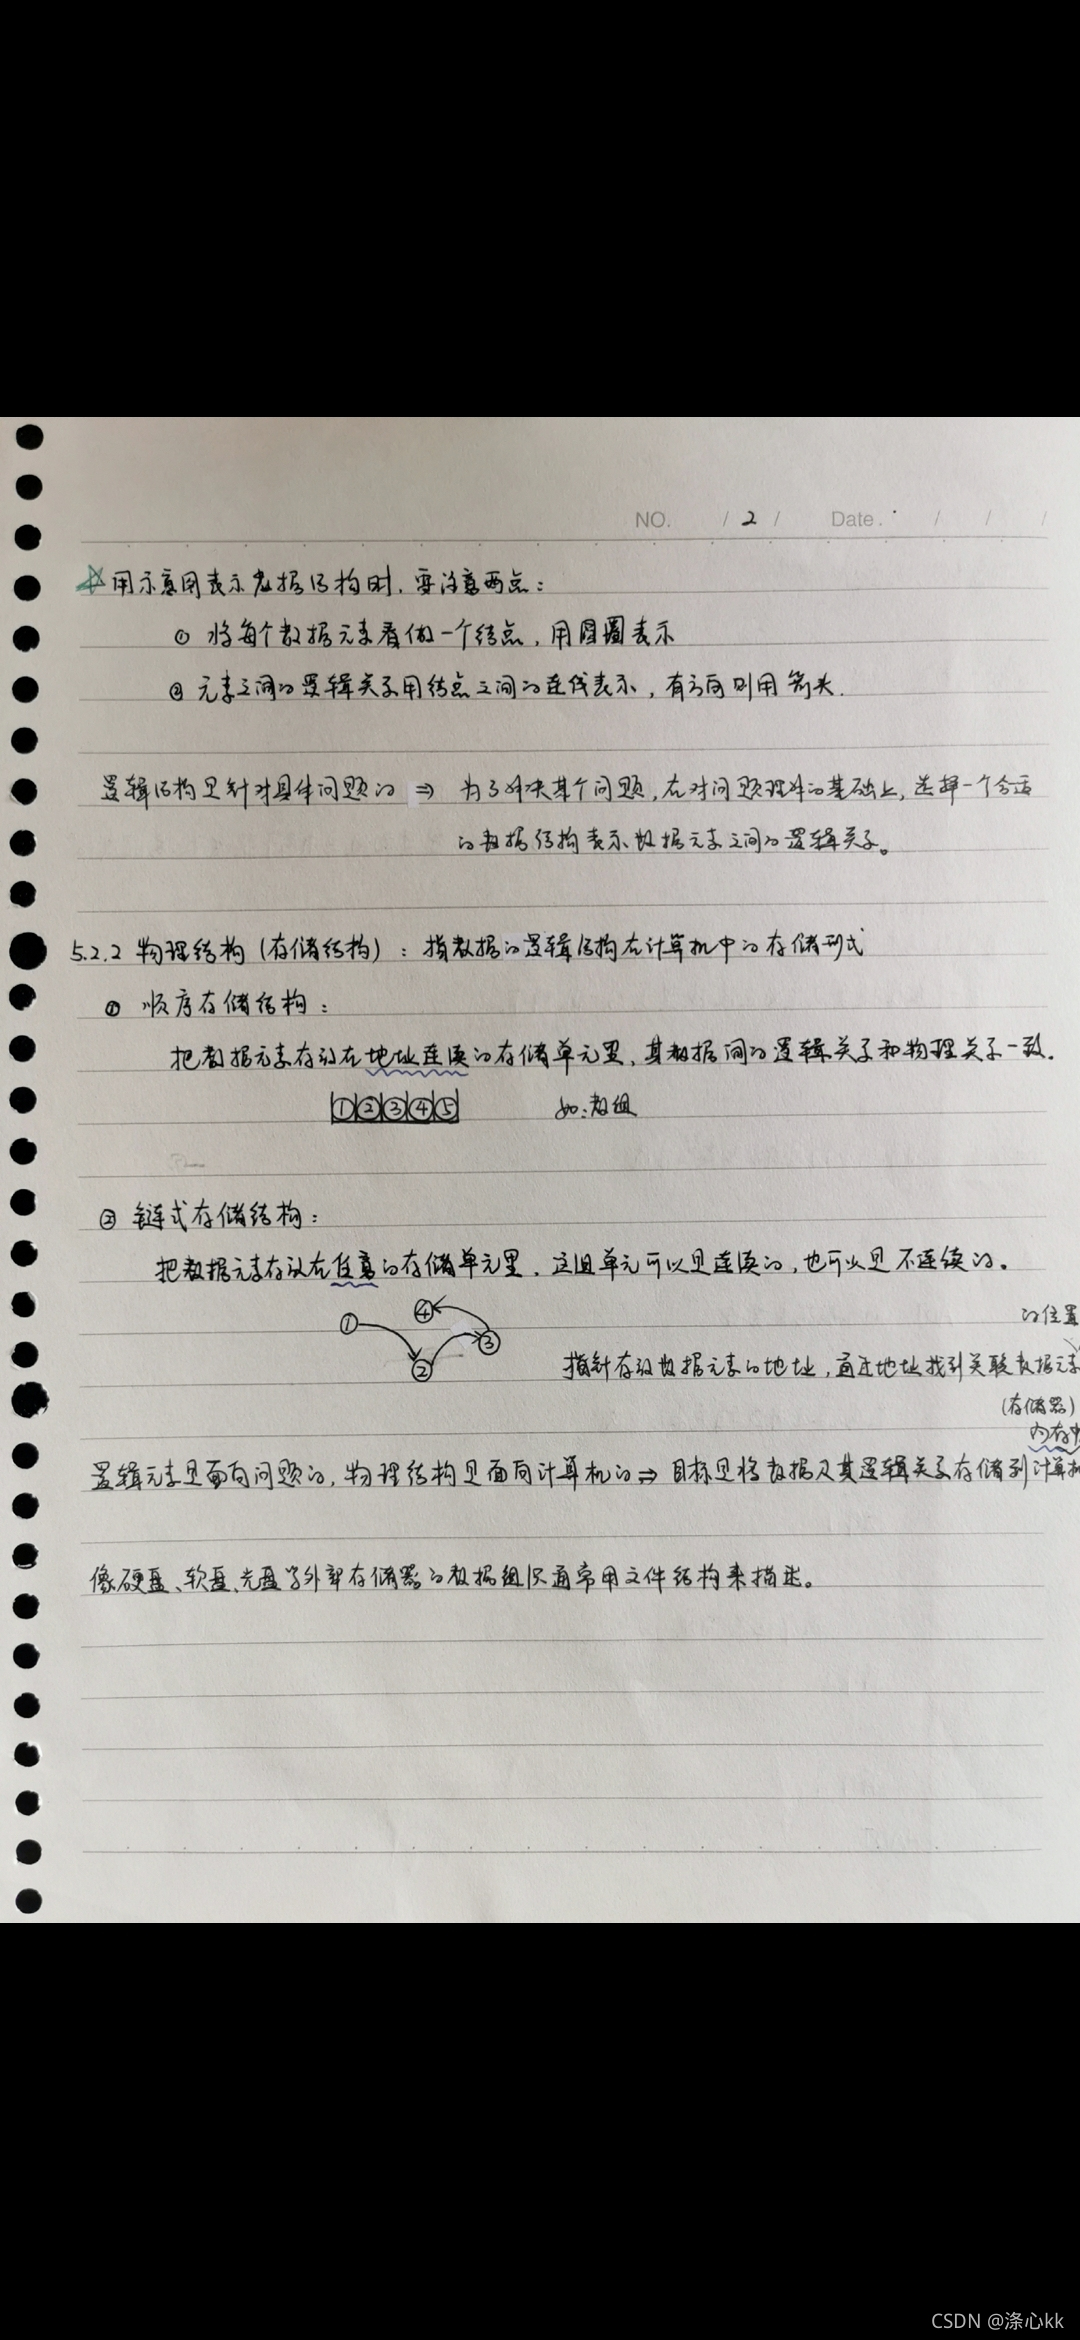 NO. / 2 / Date. / / /
用示意图表示数据结构时，要注意两点：
① 将每个数据元素看做一个结点，用圆圈表示
② 元素之间的逻辑关系用结点之间的连线表示，有方向则用箭头.
逻辑结构是针对具体问题的 ⇒ 为了解决某个问题，在对问题理解的基础上，选择一个合适
的数据结构表示数据元素之间的逻辑关系。
5.2.2 物理结构（存储结构）：指数据的逻辑结构在计算机中的存储形式
① 顺序存储结构：
把数据元素存放在地址连续的存储单元里，其数据间的逻辑关系和物理关系一致.
①②③④⑤ 如：数组
② 链式存储结构：
把数据元素存放在任意的存储单元里，这组单元可以是连续的，也可以是不连续的。
① ④ ② ③
的位置
指针存放数据元素的地址，通过地址找到关联数据元素
（存储器）
内存中
逻辑元素是面向问题的，物理结构是面向计算机的 ⇒ 目标是将数据及其逻辑关系存储到计算机
像硬盘、软盘、光盘等外部存储器的数据组织通常用文件结构来描述。
CSDN @涤心kk